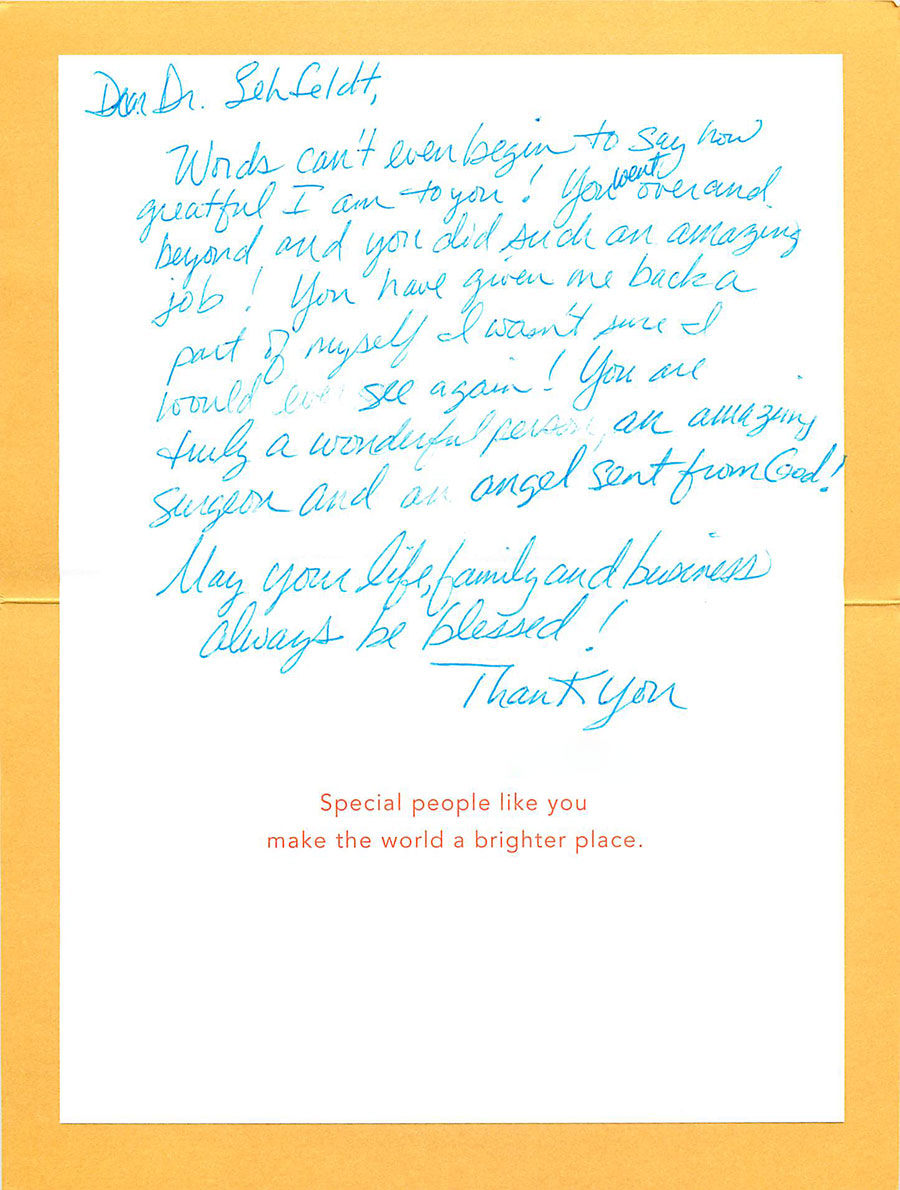 Dear Dr. Lehfeldt,
Words can't even begin to say how
greatful I am to you! You went over and
beyond and you did such an amazing
job! You have given me back a
part of myself I wasn't sure I
would ever see again! You are
truly a wonderful person, an amazing
surgeon and an angel sent from God!
May your life, family and business
always be blessed!
Thank You
Special people like you
make the world a brighter place.